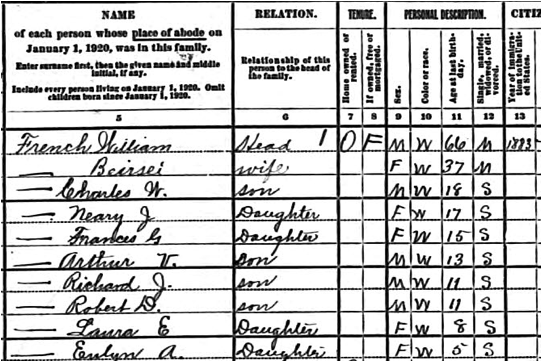 NAME RELATION. TENURE. PERSONAL DESCRIPTION. CITIZ
of each person whose place of abode on
January 1, 1920, was in this family.
Enter surname first, then the given name and middle
initial, if any.
Include every person living on January 1, 1920. Omit
children born since January 1, 1920.
Relationship of this
person to the head of
the family.
Home owned or
rented.
If owned, free or
mortgaged.
Sex.
Color or race.
Age at last birth-
day.
Single, married,
widowed, or di-
vorced.
Year of immigra-
tion to the Unit-
ed States.
5 6 7 8 9 10 11 12 13
French William Head 1 O F M W 66 M 1883
— Beirsei wife F W 37 M
— Charles W. son M W 18 S
— Neary J Daughter F W 17 S
— Frances G Daughter F W 15 S
— Arthur V. son M W 13 S
— Richard J. son M W 11 S
— Robert D. son M W 11 S
— Laura E Daughter F W 8 S
— Evelyn A. Daughter F W 5 S